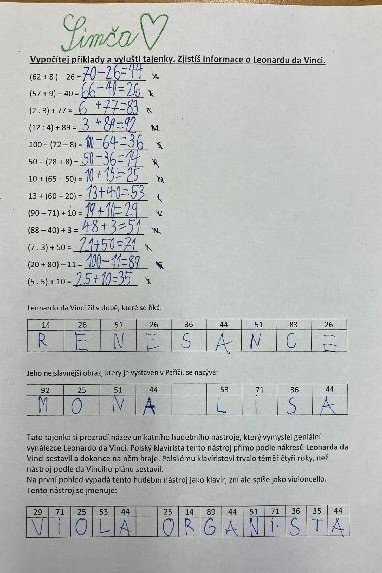 Simča
Vypočítej příklady a vylušti tajenky. Zjistíš informace o Leonardu da Vinci.
(62 + 8) – 26 = 70-26=44
(57 + 9) – 40 = 66-40=26
(2 . 3) + 77 = 6+77=83
(12 : 4) + 89 = 3+89=92
100 – (72 – 8) = 100-64=36
50 – (28 + 8) = 50-36=14
10 + (65 – 50) = 10+15=25
13 + (60 – 20) = 13+40=53
(90 – 71) + 10 = 19+10=29
(88 – 40) + 3 = 48+3=51
(7 . 3) + 50 = 21+50=71
(20 + 80) – 11 = 100-11=89
(5 . 5) + 10 = 25+10=35
Leonardo da Vinci žil v době, které se říká:
14 26 51 26 36 44 51 83 26
R E N E S A N C E
Jeho nejslavnější obraz, který je vystaven v Paříži, se nazývá:
92 25 51 44 53 71 36 44
M O N A L I S A
Tato tajenka ti prozradí název unikátního hudebního nástroje, který vymyslel geniální
vynálezce Leonardo da Vinci. Polský klavírista tento nástroj přímo podle nákresů Leonarda da
Vinci sestavil a dokonce na něm hraje. Polskému klavíristovi trvalo téměř čtyři roky, než
nástroj podle da Vinciho plánu sestavil.
Na první pohled vypadá tento hudební nástroj jako klavír, zní ale spíše jako violoncello.
Tento nástroj se jmenuje:
29 71 25 53 44 25 14 89 44 51 71 36 35 44
V I O L A O R G A N I S T A